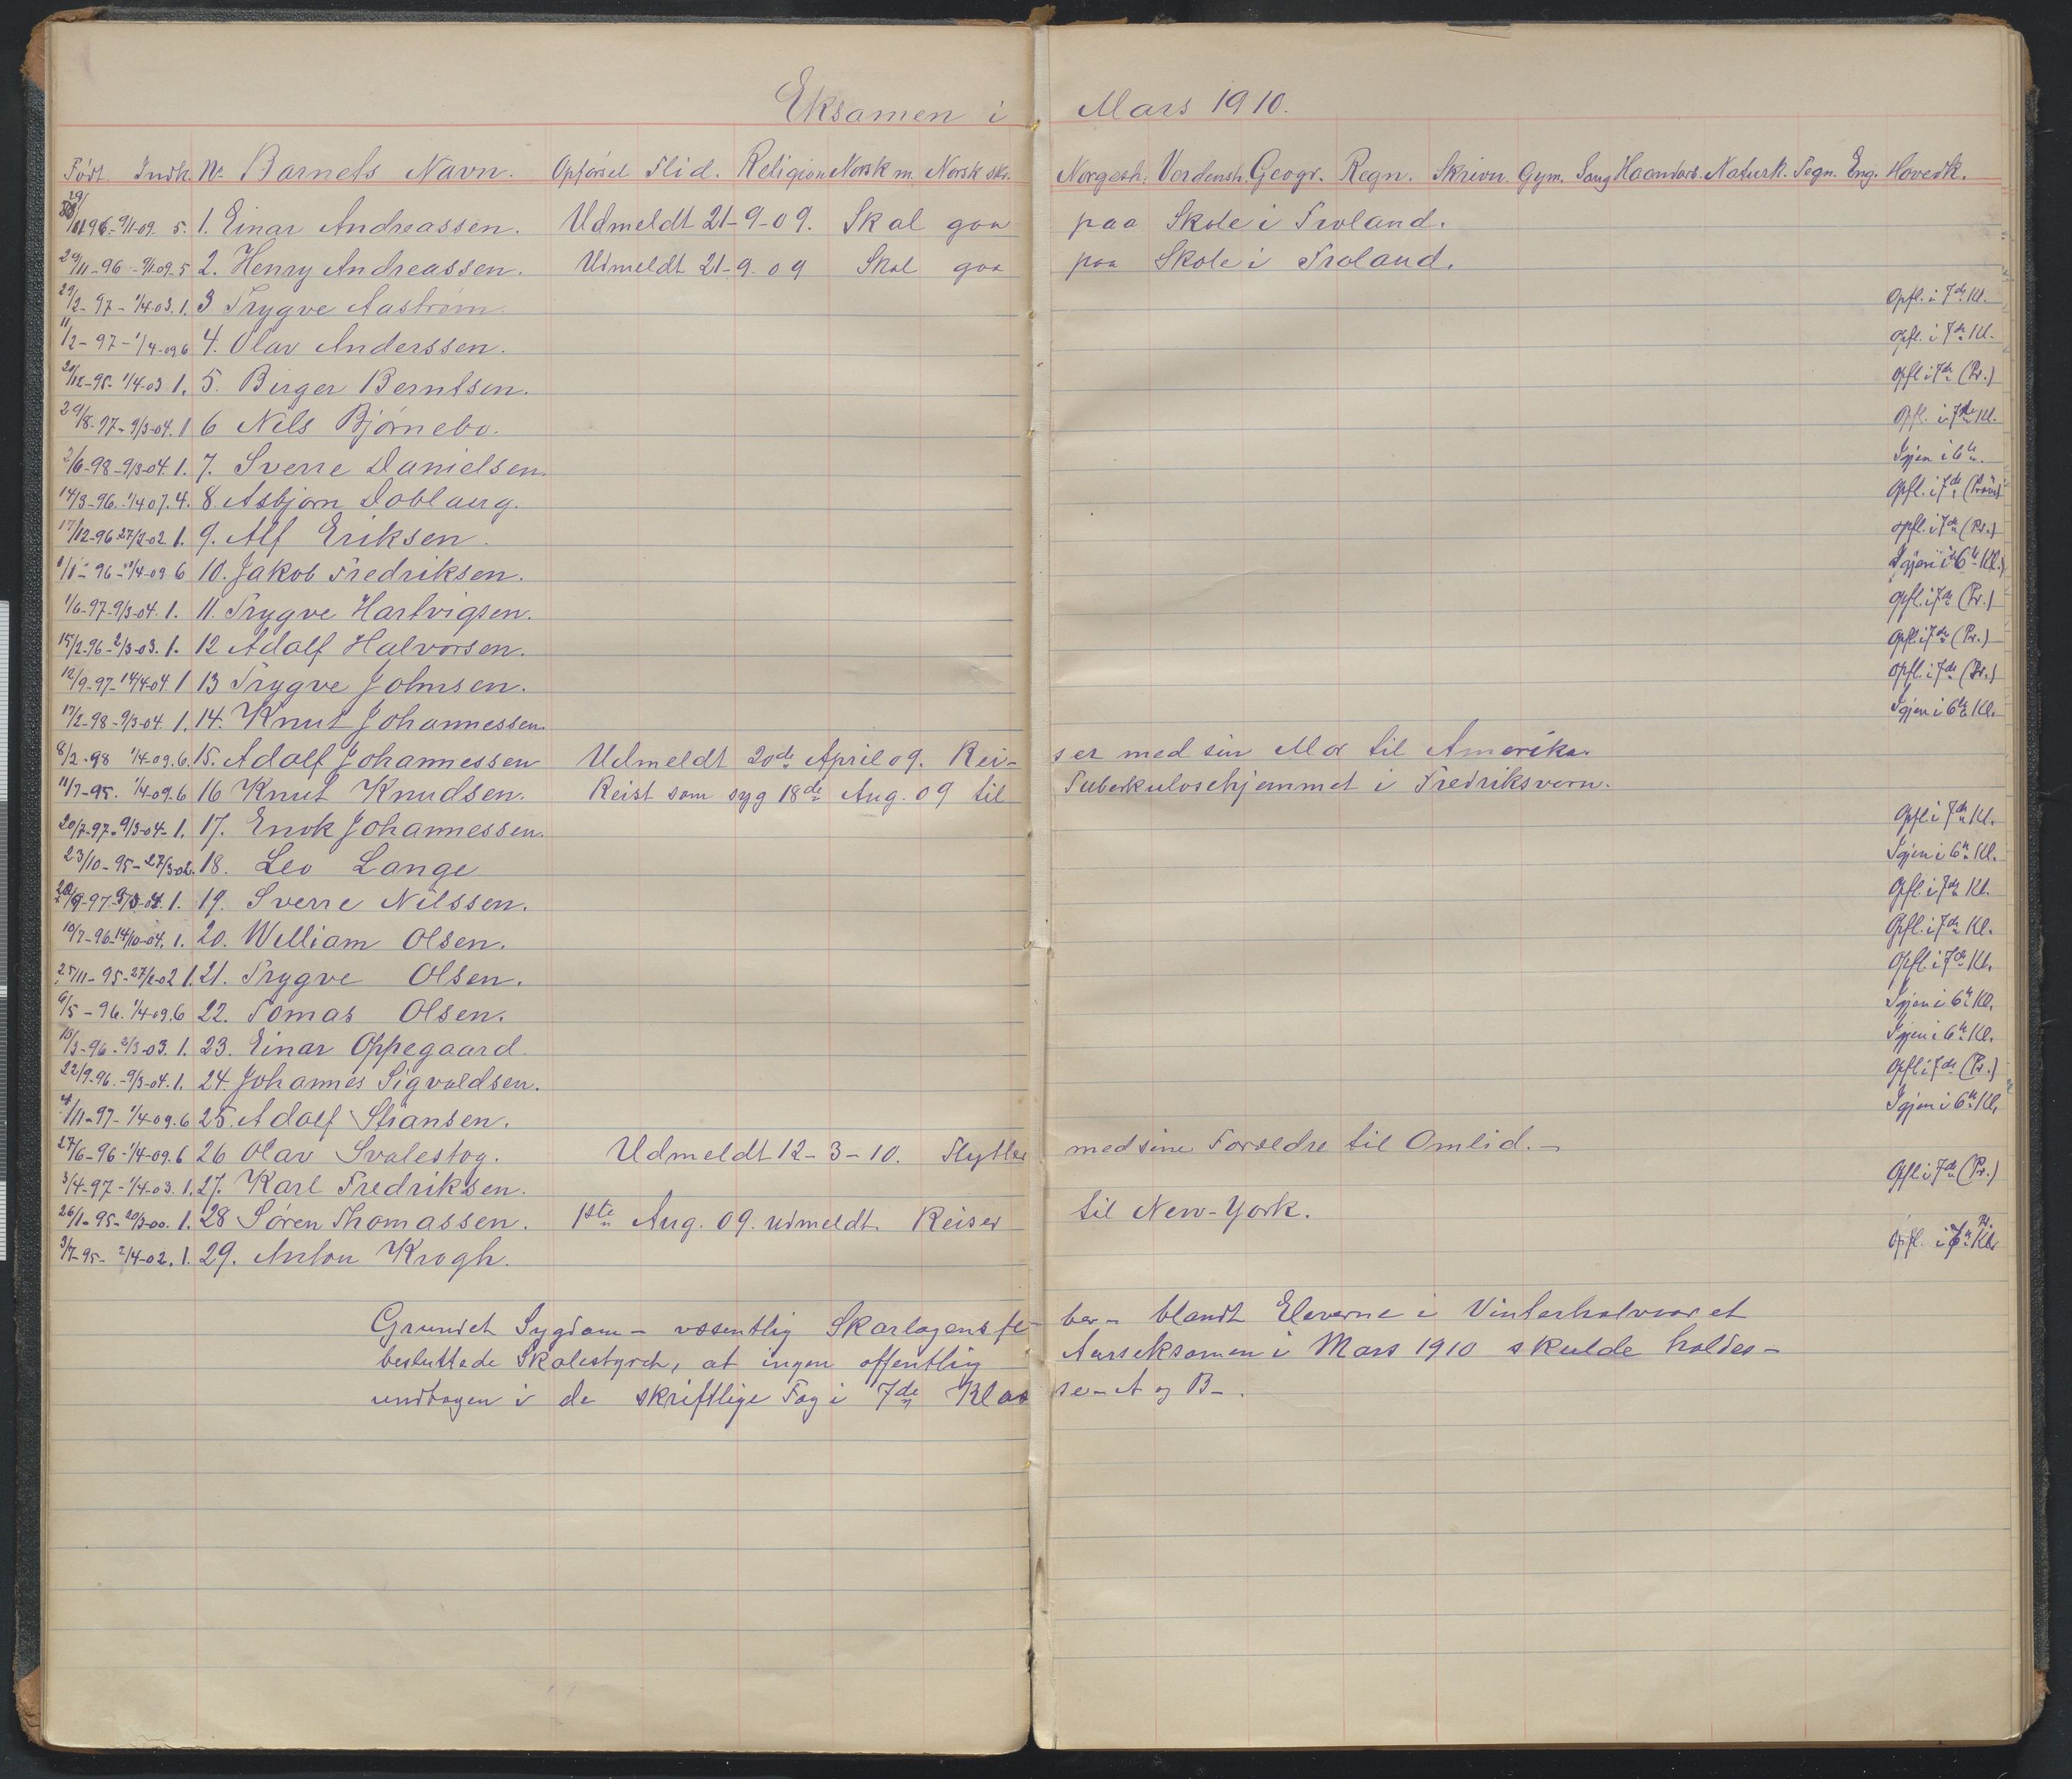 Eksamen i Mars 1910.
Født Indk. No Barnets Navn. Opførsel Flid. Religion Norsk m. Norsk skr. Norgesh. Verdensh. Geogr. Regn. Skrivn. Gym. Sang Haandarb. Naturk. Tegn. Eng. Hovedk.
29/11 96 - 9/1-09. 5. 1. Einar Andreassen. Udmeldt 21-9-09. Skal gaa paa Skole i Froland.
29/11-96 - 9/1-09-5 2. Henry Andreassen. Udmeldt 21-9-09 Skal gaa paa Skole i Froland.
29/2-97 - 1/4 03. 1. 3 Trygve Aastrøm. Opfl. i 7de Kl.
11/2-97 - 1/4-09 6 4. Olav Anderssen. Opfl. i 7de Kl.
20/12-95- 1/4-03 1. 5. Birger Berntsen. Opfl. i 7de (Pr.)
29/8-97- 9/3-04. 1 6 Nils Bjørnebo. Opfl. i 7de Kl.
2/6-98 - 9/3-04. 1. 7. Sverre Danielsen. Igjen i 6te.
14/3-96. - 1/4 07. 4. 8. Asbjørn Doblaug. Opfl. i 7de
17/12-96 27/2-02. 1. 9. Alf Eriksen. Opfl. i 7de (Pr.)
96 - 1/4-09 6 10. Jakob Fredriksen. Igjen i 6te Kl.)
1/6-97-9/3-04. 1. 11. Trygve Hartvigsen. Opfl. i 7de (Pr.)
15/2-96 - 2/3-03. 1. 12 Adolf Halvorsen. Opfl. i 7de (Pr.)
12/9-97- 14/4-04 1 13 Trygve Johnsen. Opfl. i 7de (Pr.)
17/2-98 - 9/3-04. 1. 14. Knut Johannessen. Igjen i 6te Kl.
8/2-98 1/4-09. 6. 15. Adolf Johannessen Udmeldt 20de April 09. Reiser med sin Mor til Amerika.
11/7-95. 1/4-09. 6 16 Knut Knudsen. Reist som syg 18de Aug. 09 til Tuberkulosehjemmet i Fredriksvern.
20/7-97- 9/3-04- 1. 17. Enok Johannessen. Opfl. i 7de Kl.
23/10-95 - 27/3-02. 18. Leo Lange Igjen i 6te Kl.
97- 9/3-04. 1. 19. Sverre Nilssen. Opfl. i 7de Kl.
10/7-96- 14/10-04. 1. 20. William Olsen. Opfl. i 7de Kl.
25/11-95 - 27/2-02 1. 21. Trygve Olsen. Opfl. i 7de Kl.
6/5-96. 1/4-09. 6 22. Tomas Olsen. Igjen i 6te Kl.
10/3-96 - 2/3-03. 1. 23. Einar Oppegaard. Igjen i 6te Kl.
22/9-96. - 9/3-04. 1. 24. Johannes Sigvaldsen. Opfl. i 7de (Pr.)
4/11-97 - 1/4-09. 6 25. Adolf Stiansen. Igjen i 6te Kl.
27/6-96 - 1/4-09. 6 26 Olav Svalestog. Udmeldt 12-3-10. Flytter med sine Foreldre til Omlid. -
3/4-97 - 1/4-03. 1. 27. Karl Fredriksen. Opfl. i 7de (Pr.)
26/1-95- 20/3-00. 1. 28 Søren Thomassen. 1ste Aug. 09. udmeldt. Reiser til New-York.
3/7-95- 2/4-02. 1. 29. Anton Krogh. Opfl. i Kl.
Grundet Sygdom - væsentlig Skarlagensfeber - blandt Eleverne i Vinterhalvaaret
besluttede Skolestyret, at ingen offentlig Aarseksamen i Mars 1910 skulde holdes -
undtagen i de skriftlige Fag i 7de Klasse - A og B -.